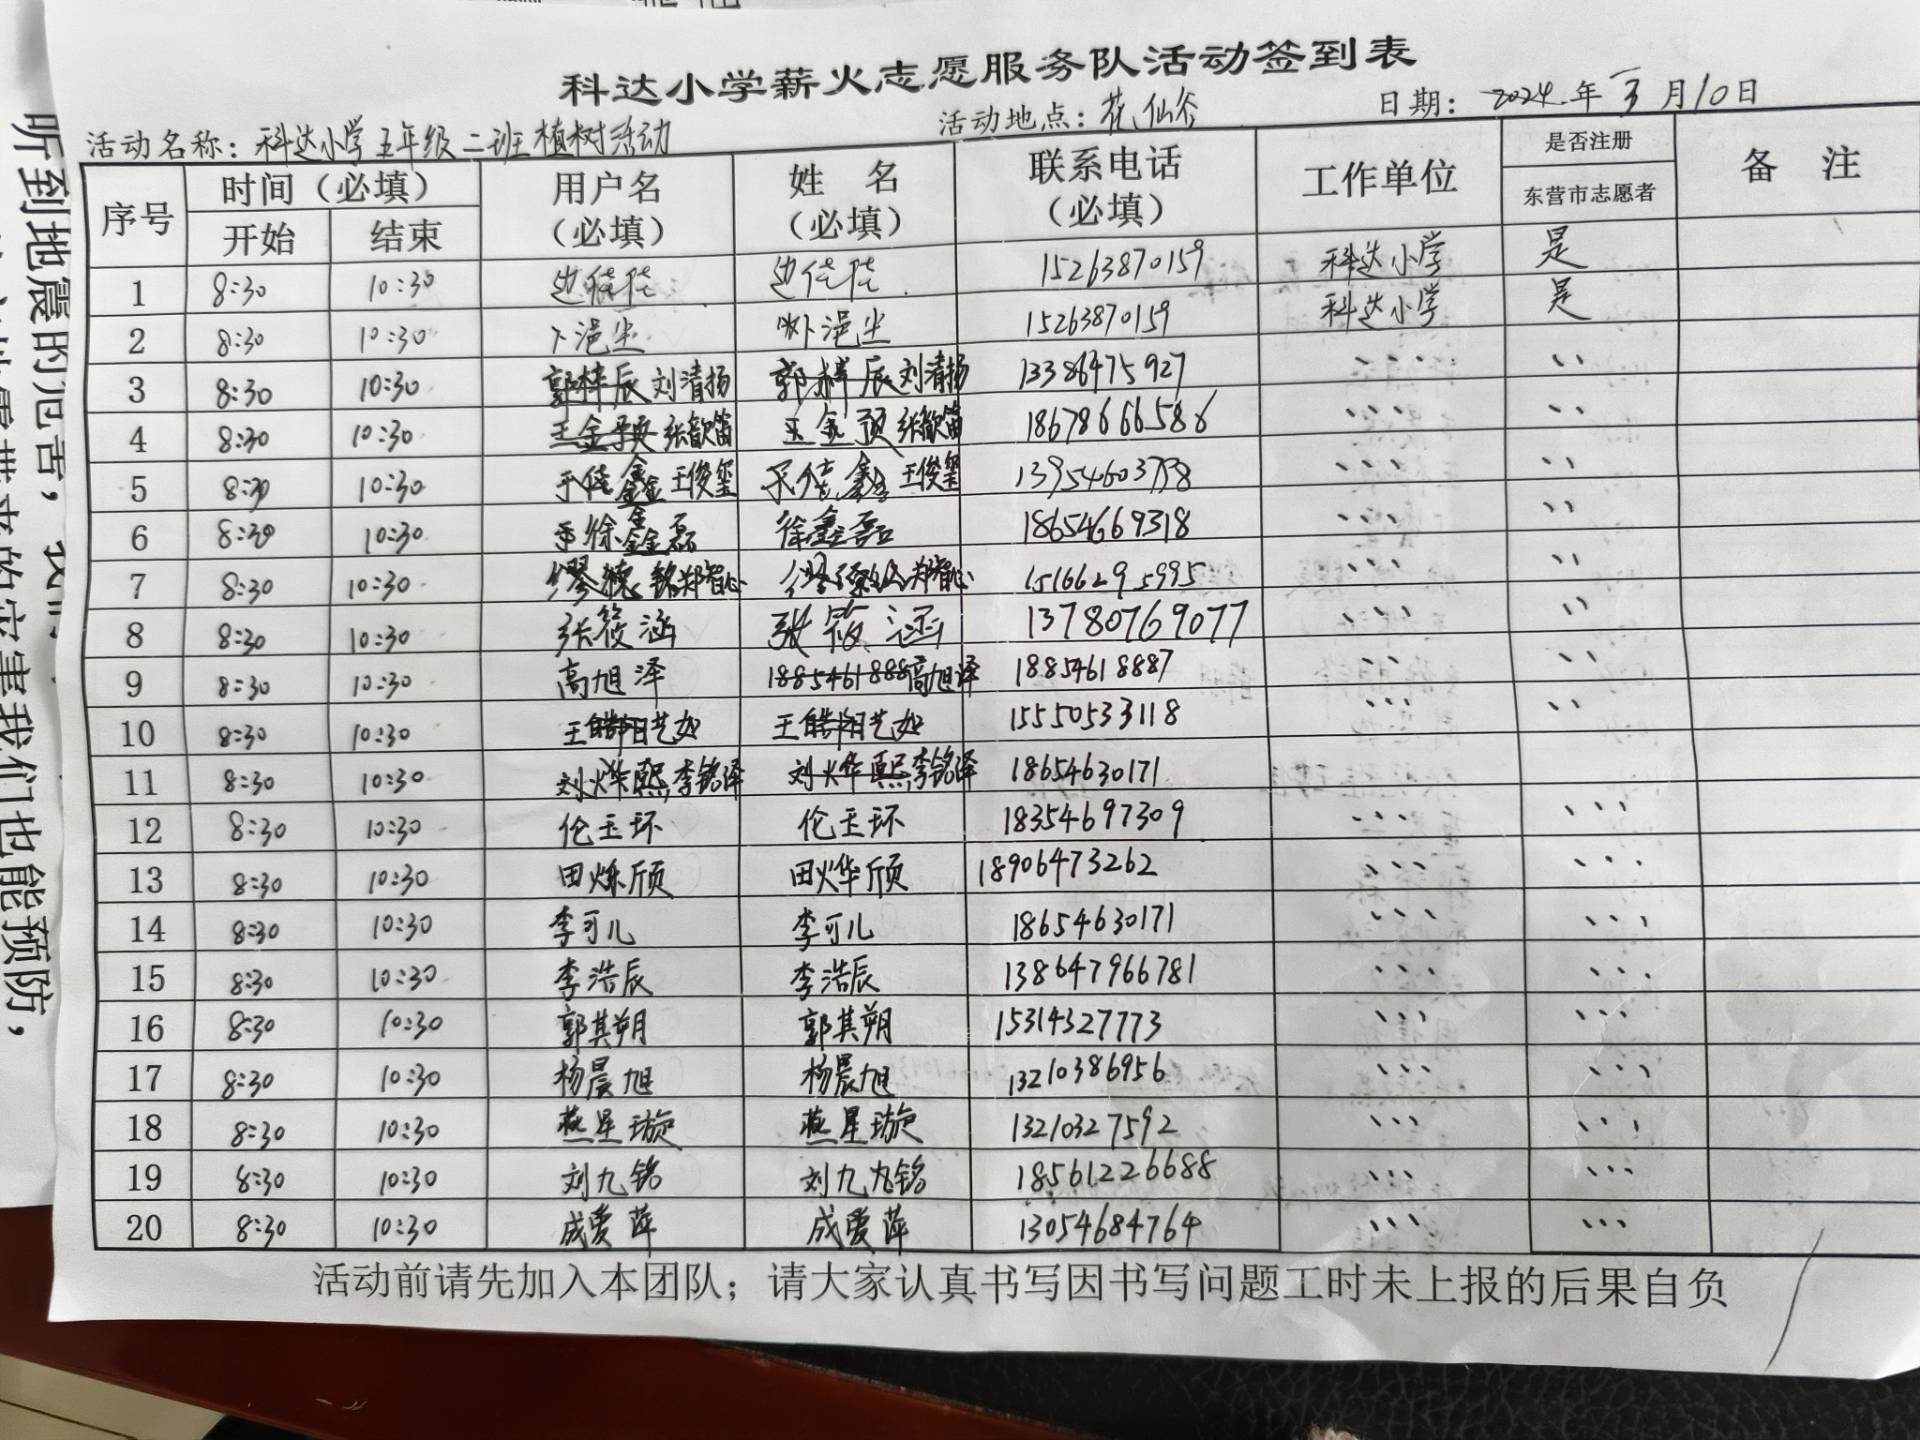 科达小学薪火志愿服务队活动签到表
活动名称：科达小学五年级二班植树活动 活动地点：花仙谷 日期：2024年3月10日
序号 时间（必填） 用户名（必填） 姓 名（必填） 联系电话（必填） 工作单位 是否注册 备 注
开始 结束 东营市志愿者
1 8:30 10:30 边佳佳 边佳佳 15263870159 科达小学 是
2 8:30 10:30 卜浥尘 卜浥尘 15263870159 科达小学 是
3 8:30 10:30 刘清扬 刘清扬 13386475927
4 8:30 10:30 张歆笛 张歆笛 18678666586
5 8:30 10:30 王俊玺 王俊玺
6 8:30 10:30 徐鑫磊 徐鑫磊 18654669318
7 8:30 10:30 郑智心 郑智心 15166295995
8 8:30 10:30 张筱涵 张筱涵 13780769077
9 8:30 10:30 高旭泽 高旭泽 18854618887
10 8:30 10:30 王艺如 王艺如 15550533118
11 8:30 10:30 李铭泽 李铭泽 18654630171
12 8:30 10:30 伦玉环 伦玉环 18354697309
13 8:30 10:30 田烁颀 田烨颀 18906473262
14 8:30 10:30 李可儿 李可儿 18654630171
15 8:30 10:30 李浩辰 李浩辰 138647966781
16 8:30 10:30 郭其朔 郭其朔 15314327773
17 8:30 10:30 杨晨旭 杨晨旭 13210386956
18 8:30 10:30 燕星璇 燕星璇 13210327592
19 8:30 10:30 刘九铭 刘九铭 18561226688
20 8:30 10:30 成爱萍 成爱萍 13054684764
活动前请先加入本团队；请大家认真书写因书写问题工时未上报的后果自负
我们也能预防，